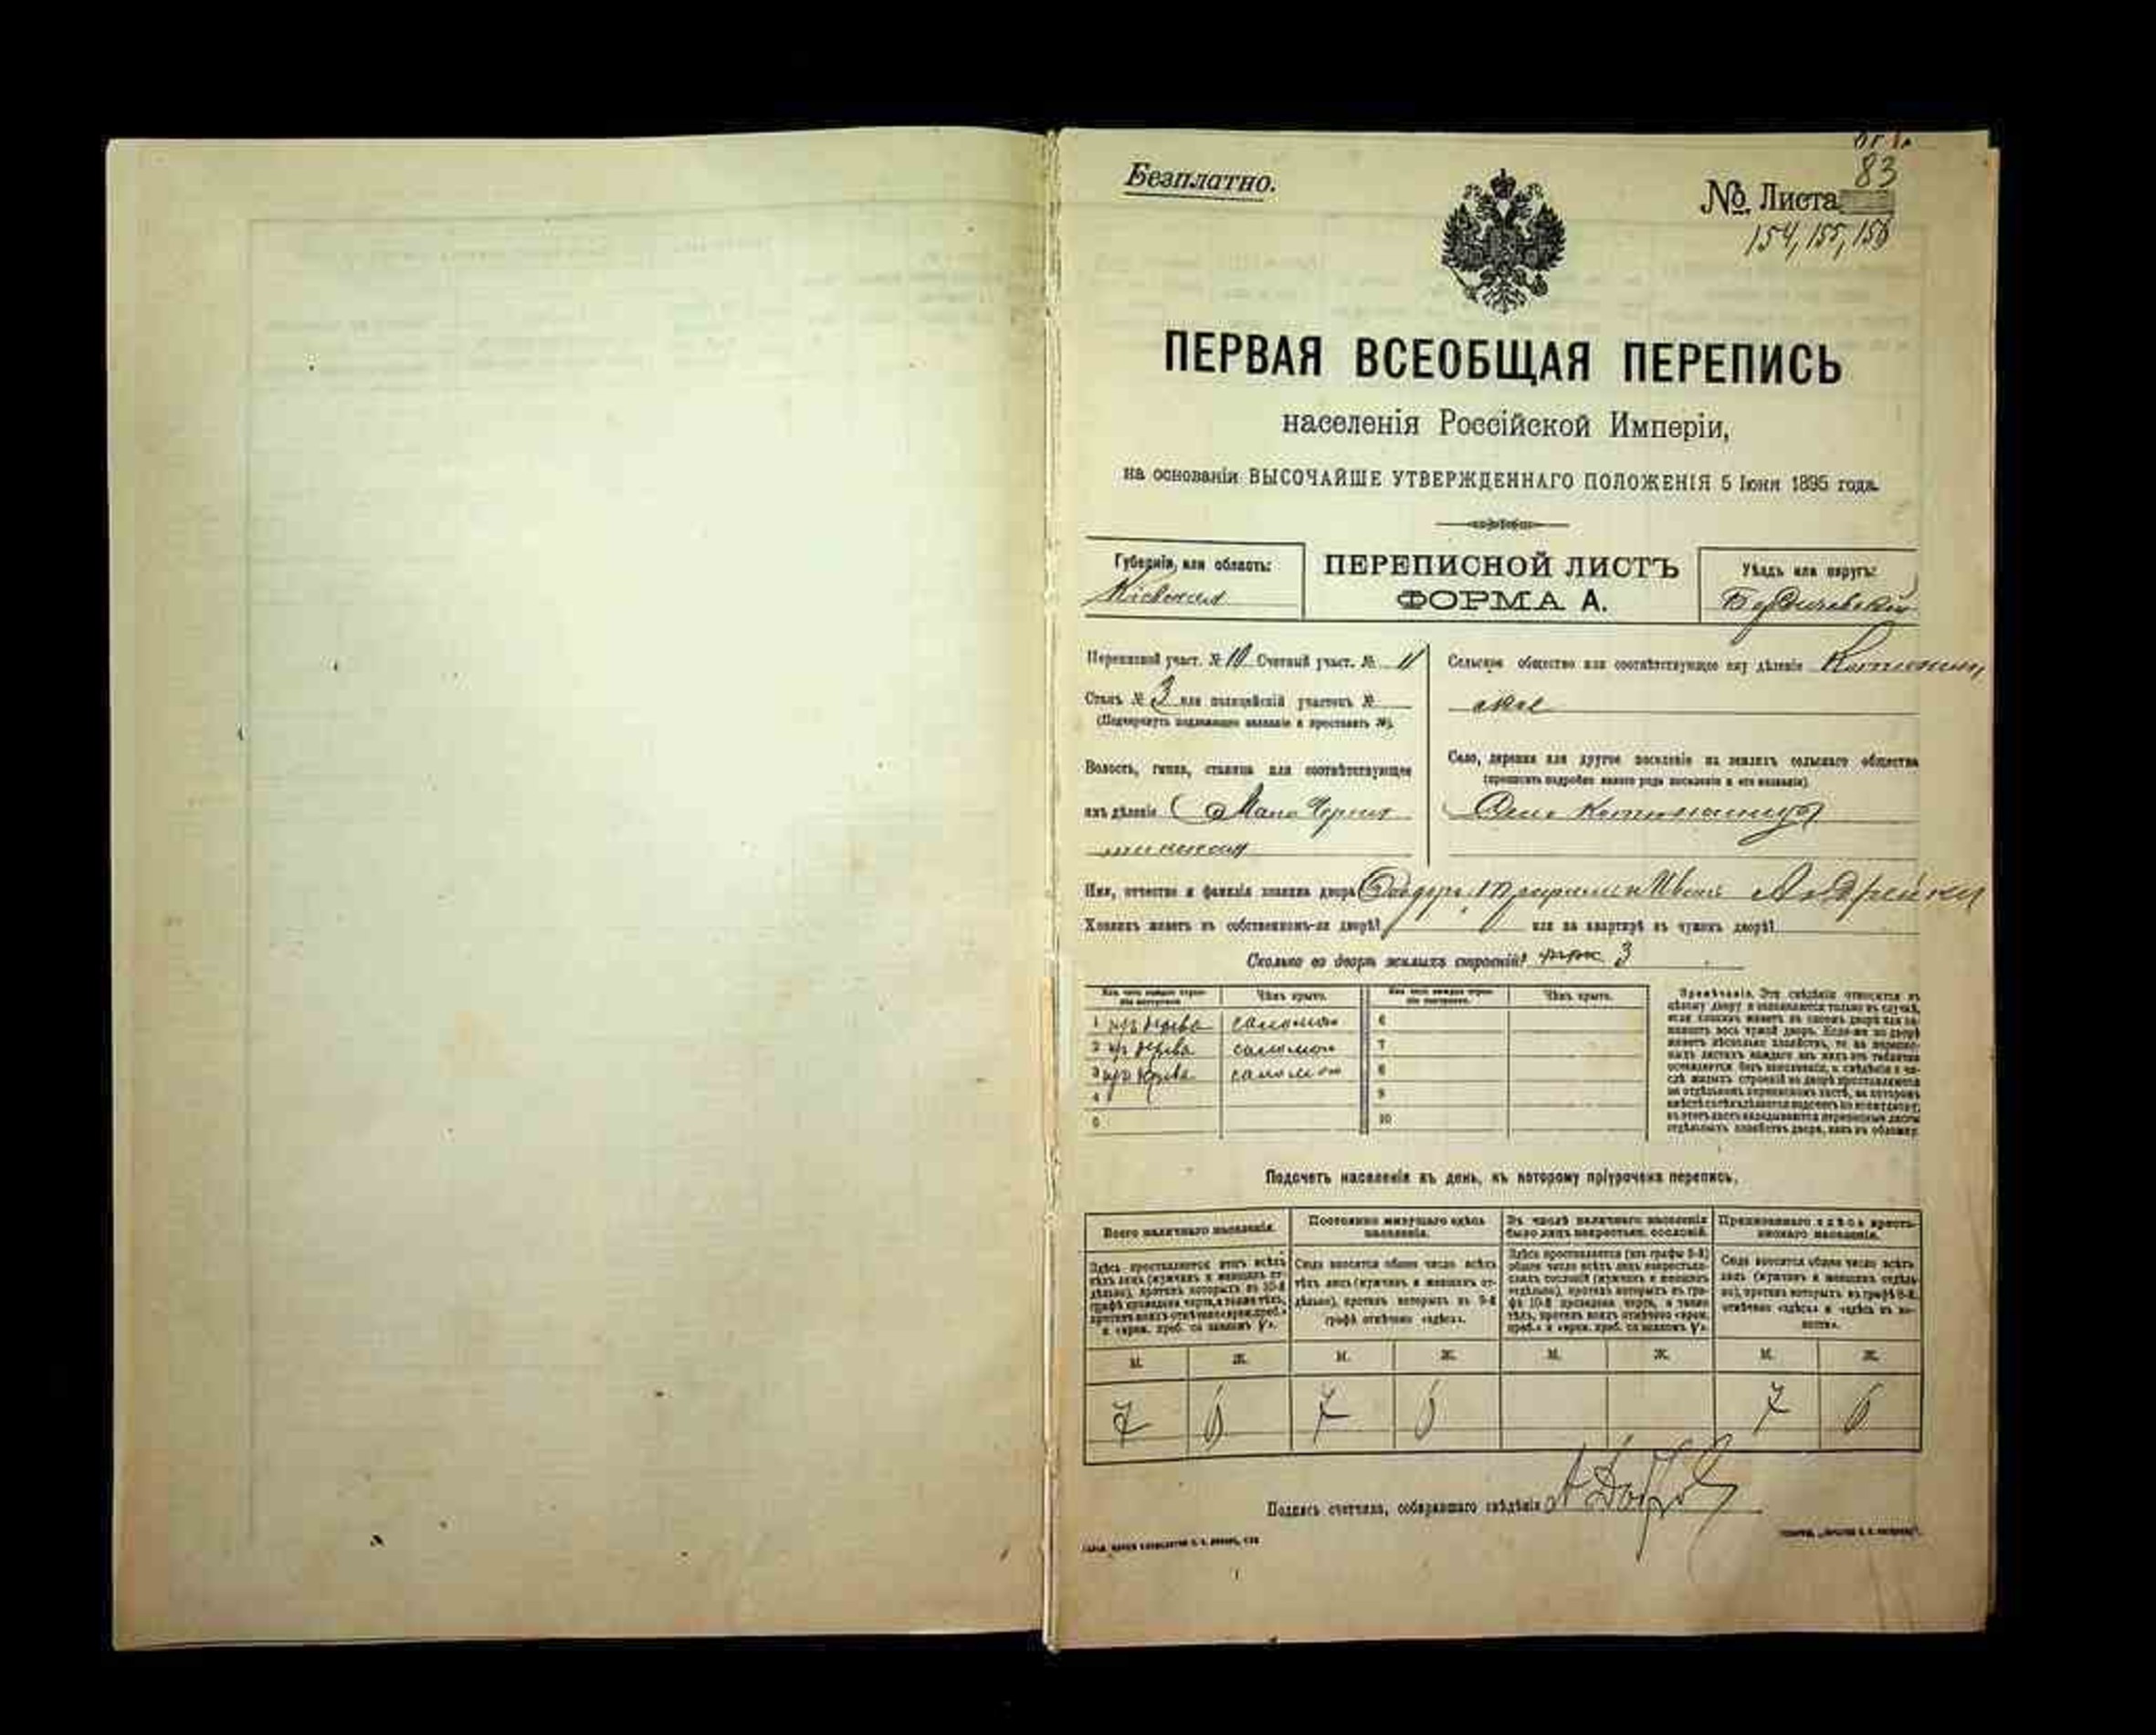 Безплатно.
83
№ Листа
154, 155, 156
ПЕРВАЯ ВСЕОБЩАЯ ПЕРЕПИСЬ
населенія Россійской Имперіи,
на основаніи ВЫСОЧАЙШЕ УТВЕРЖДЕННАГО ПОЛОЖЕНІЯ 5 Іюня 1895 года.
Губернія, или область:
Кіевская
ПЕРЕПИСНОЙ ЛИСТЪ
ФОРМА А.
Уѣздъ или округъ:
Бердичевскій
Переписной участ. № 10 Счетный участ. № 11
Станъ № 3 или полицейскій участокъ №
(Подчеркнуть подлежащее названіе и проставить №).
Волость, гмина, станица или соотвѣтствующее
имъ дѣленіе Мало Черня
Сельское общество или соотвѣтствующее ему дѣленіе
ское
Село, деревня или другое поселеніе на земляхъ сельскаго общества
(прописать подробно какого рода поселеніе и его названіе)
Село
Имя, отчество и фамилія хозяина двора Ѳеодоръ, и Иванъ Андрейки
Хозяинъ живетъ въ собственномъ-ли дворѣ? или на квартирѣ въ чужомъ дворѣ?
Сколько во дворѣ жилыхъ строеній? 3
Изъ чего каждое строеніе построено. Чѣмъ крыто. Изъ чего каждое строеніе построено. Чѣмъ крыто.
1 изъ дерева соломою 6
2 изъ дерева соломою 7
3 изъ дерева соломою 8
4 9
5 10
Примѣчаніе. Эти свѣдѣнія относятся къ
цѣлому двору и заполняются только въ случаѣ,
если хозяинъ живетъ въ своемъ дворѣ или занимаетъ
весь чужой дворъ. Если-же во дворѣ
живетъ нѣсколько хозяйствъ, то на переписныхъ
листахъ каждаго изъ нихъ эта табличка
остается безъ заполненія, а свѣдѣнія о числѣ
жилыхъ строеній во дворѣ проставляются
на отдѣльномъ переписномъ листѣ, на которомъ
Подсчетъ населенія въ день, къ которому пріурочена перепись.
Всего наличнаго населенія.
Здѣсь проставляется итогъ всѣхъ
тѣхъ лицъ (мужчинъ и женщинъ отдѣльно),
противъ которыхъ въ 10-й
графѣ проведена черта, а также тѣхъ,
противъ коихъ отмѣчено «врем. преб.»
и «врем. преб. со знакомъ V».
Постоянно живущаго здѣсь
населенія.
Сюда вносится общее число всѣхъ
тѣхъ лицъ (мужчинъ и женщинъ отдѣльно),
противъ которыхъ въ 9-й
графѣ отмѣчено «здѣсь».
Въ числѣ наличнаго населенія
было лицъ некрестьян. сословій.
Здѣсь проставляется (изъ графы 3-й)
общее число всѣхъ лицъ некрестьянскихъ
сословій (мужчинъ и женщинъ
отдѣльно), противъ которыхъ въ графѣ
10-й проведена черта, а также
тѣхъ, противъ коихъ отмѣчено «врем.
преб.» и «врем. преб. со знакомъ V».
Приписаннаго здѣсь крестьянскаго
населенія.
Сюда вносится общее число всѣхъ
лицъ (мужчинъ и женщинъ отдѣльно),
противъ которыхъ въ графѣ 8-й,
отмѣчено «здѣсь» и «здѣсь въ волости».
М. Ж. М. Ж. М. Ж. М. Ж.
7 6 7 6 7 6
Подпись счетчика, собиравшаго свѣдѣнія